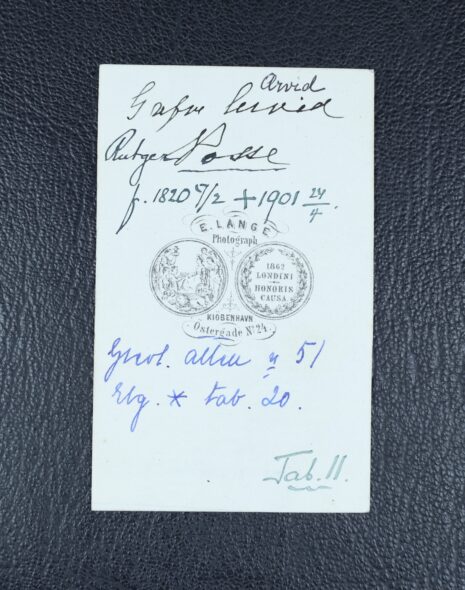 Arvid
Grefve Arvid
Rutger Posse
f. 1820 9/2 + 1901 24/4.
E. LANGE
Photograph
1862
LONDINI
HONORIS
CAUSA
KIOBENHAVN
Ostergade No 24.
51
Elg. * tab. 20.
Tab. 11.